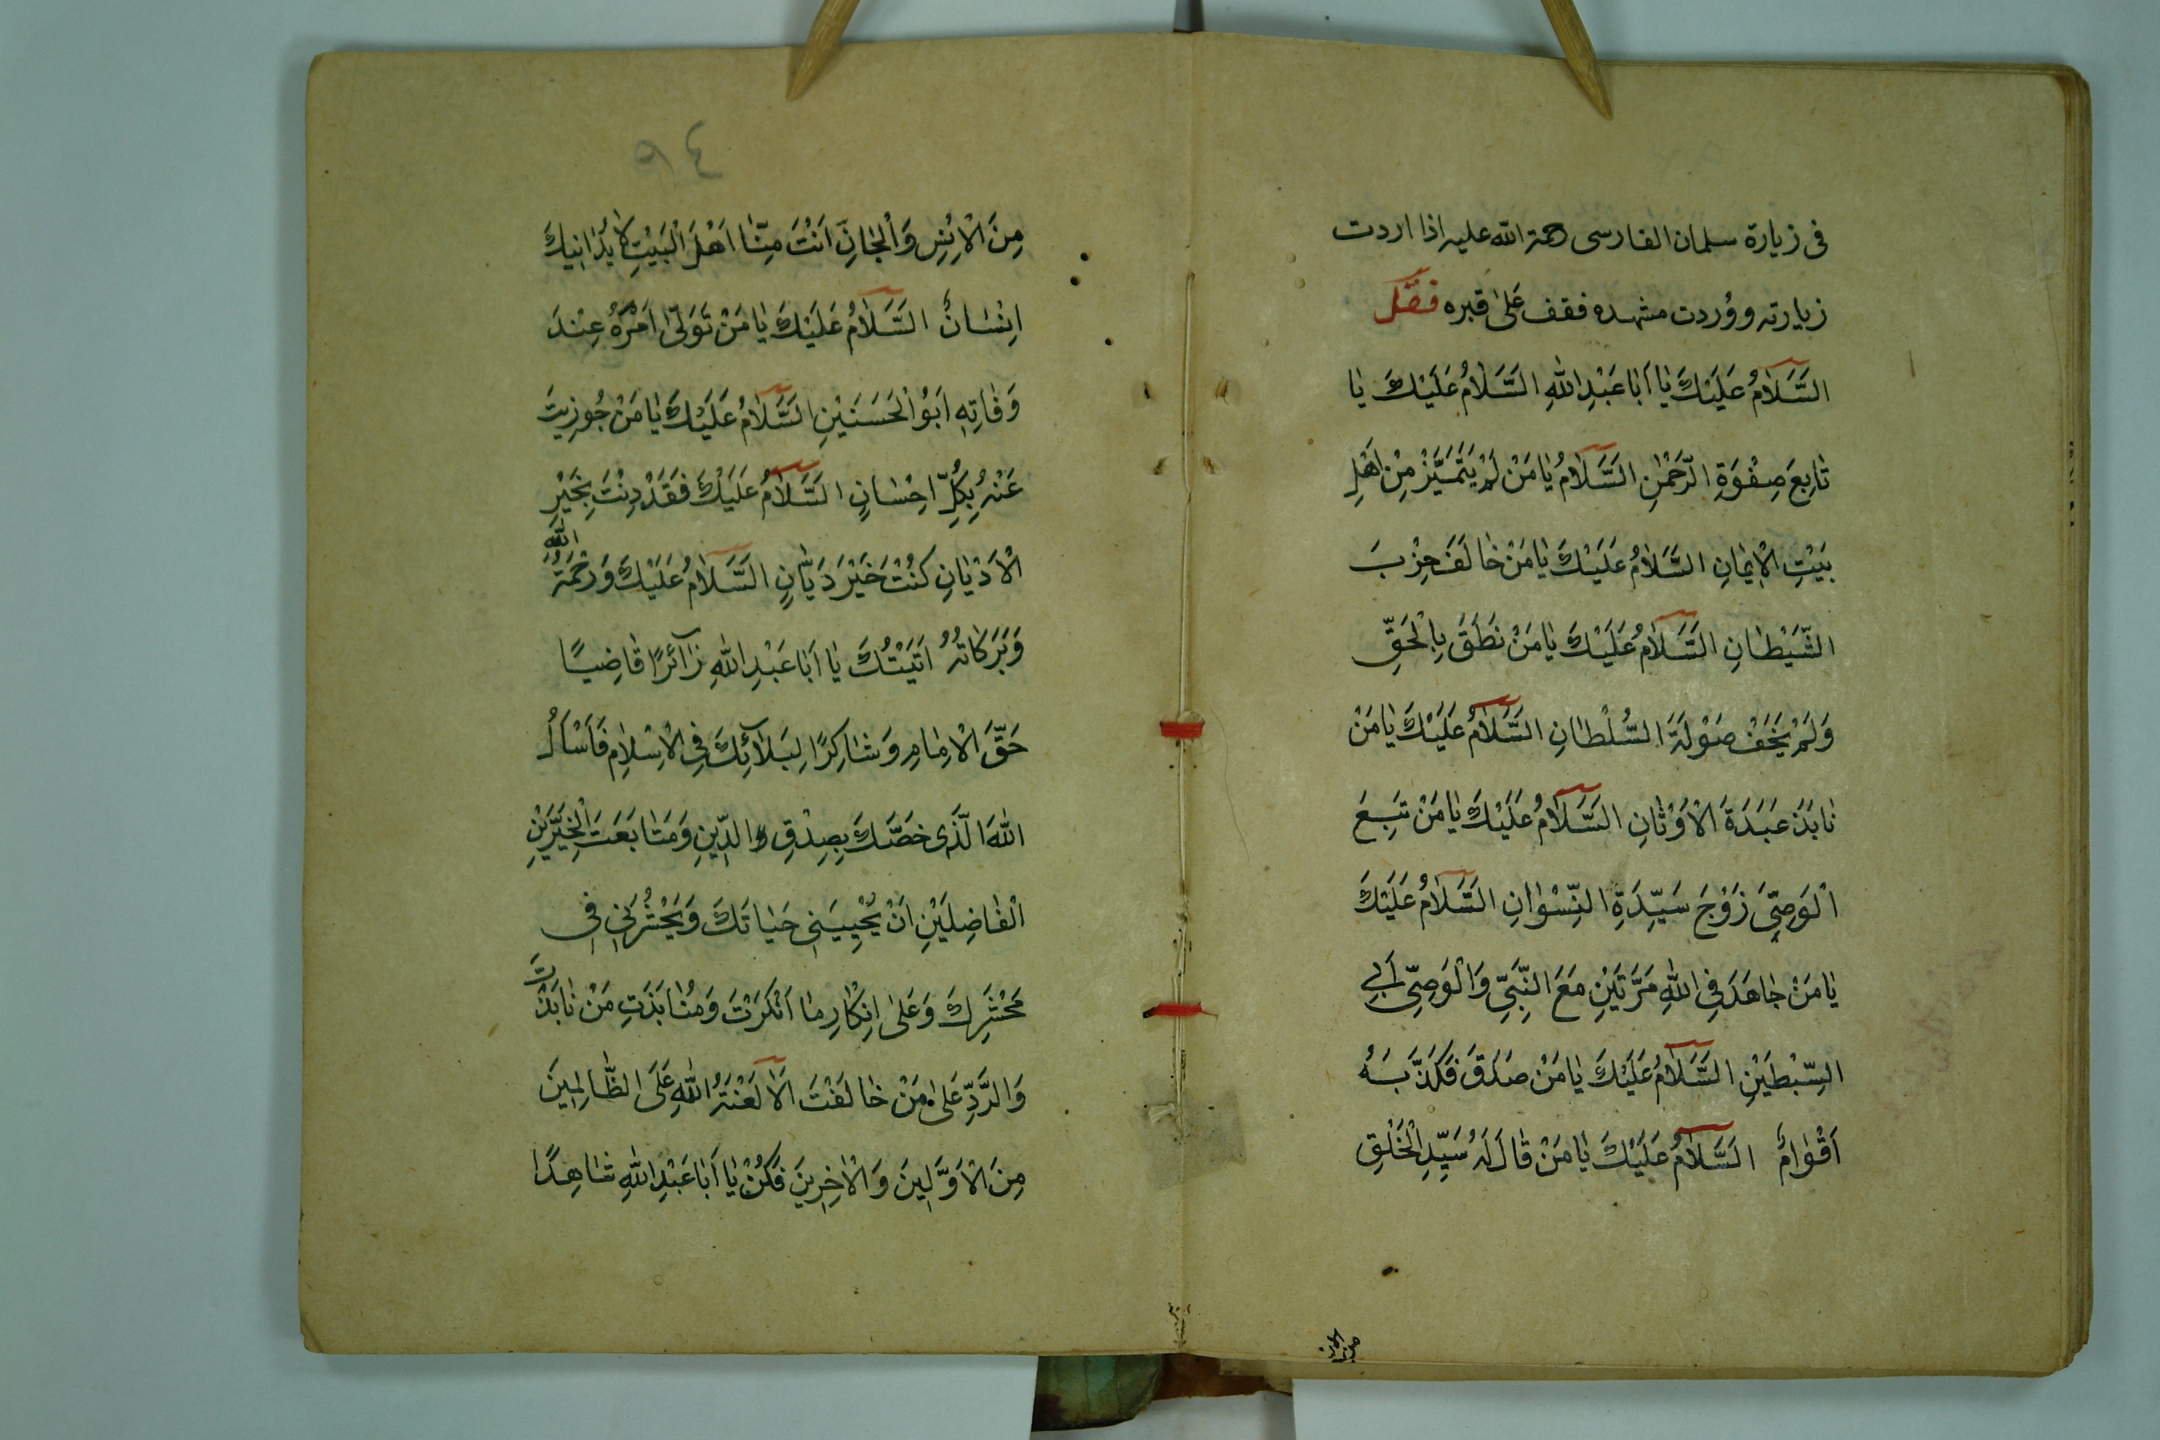 فی زیارة سلمان الفارسی رحمة الله علیه اذا اردت
زیارته ووُردت مشهده فقف عَلیٰ قبره فَقُل
السَّلَامُ عَلَیْكَ یٰا اَبٰا عَبْدِ اللّٰهِ السَّلَامُ عَلَیْكَ یٰا
تٰابِعَ صِفْوَةِ الرَّحْمٰنِ السَّلَامُ یٰا مَنْ لَمْ یَتَمَیَّزْ مِنْ اَهْلِ
بَیْتِ الْاِیمٰانِ السَّلَامُ عَلَیْكَ یٰا مَنْ خٰالَفَ حِزْبَ
الشَّیْطٰانِ السَّلَامُ عَلَیْكَ یٰا مَنْ نَطَقَ بِالْحَقِّ
وَلَمْ یَخَفْ صَوْلَةَ السُّلْطٰانِ السَّلَامُ عَلَیْكَ یٰا مَنْ
نٰابَذَ عَبَدَةَ الْاَوْثٰانِ السَّلَامُ عَلَیْكَ یٰا مَنْ تَبِعَ
الْوَصِیَّ زَوْجَ سَیِّدَةِ النِّسْوٰانِ السَّلَامُ عَلَیْكَ
یٰا مَنْ جٰاهَدَ فِی اللّٰهِ مَرَّتَیْنِ مَعَ النَّبِیِّ وَالْوَصِیِّ اَبِی
السِّبْطَیْنِ السَّلَامُ عَلَیْكَ یٰا مَنْ صَدَقَ فَكَذَّبَهُ
اَقْوٰامٌ السَّلَامُ عَلَیْكَ یٰا مَنْ قٰالَ لَهُ سَیِّدُ الْخَلْقِ
مِنَ الْاِنْسِ وَالْجٰانِّ اَنْتَ مِنّٰا اَهْلَ الْبَیْتِ لٰا یُدٰانِیكَ
اِنْسٰانٌ السَّلَامُ عَلَیْكَ یٰا مَنْ تَوَلّٰی اَمْرَهُ عِنْدَ
وَفٰاتِهِ اَبُو الْحَسَنَیْنِ السَّلَامُ عَلَیْكَ یٰا مَنْ جُوزِیتَ
عَنْهُ بِكُلِّ اِحْسٰانٍ السَّلَامُ عَلَیْكَ فَقَدْ دِنْتَ بِخَیْرِ
الْاَدْیٰانِ كُنْتَ خَیْرَ دَیّٰانٍ السَّلَامُ عَلَیْكَ وَرَحْمَةُ اللّٰهِ
وَبَرَكٰاتُهُ اَتَیْتُكَ یٰا اَبٰا عَبْدِ اللّٰهِ زٰآئِرًا قٰاضِیًا
حَقَّ الْاِمٰامِ وَشٰاكِرًا لِبَلٰآئِكَ فِی الْاِسْلٰامِ فَاَسْاَلُ
اللّٰهَ الَّذِی خَصَّكَ بِصِدْقِ الدِّینِ وَمَتٰابَعَتَ الْخَیِّرَیْنِ
الْفٰاضِلَیْنِ اَنْ یُحْیِیَنِی حَیٰاتَكَ وَیَحْشُرَنِی فِی
مَحْشَرِكَ وَعَلیٰ اِنْكٰارِ مٰا اَنْكَرْتَ وَمُنٰابَذَتِ مَنْ نٰابَذْتَ
وَالرَّدِّ عَلیٰ مَنْ خٰالَفْتَ اَلَا لَعْنَةُ اللّٰهِ عَلَی الظّٰالِمِینَ
مِنَ الْاَوَّلِینَ وَالْاٰخِرِینَ فَكُنْ یٰا اَبٰا عَبْدِ اللّٰهِ شٰاهِدًا